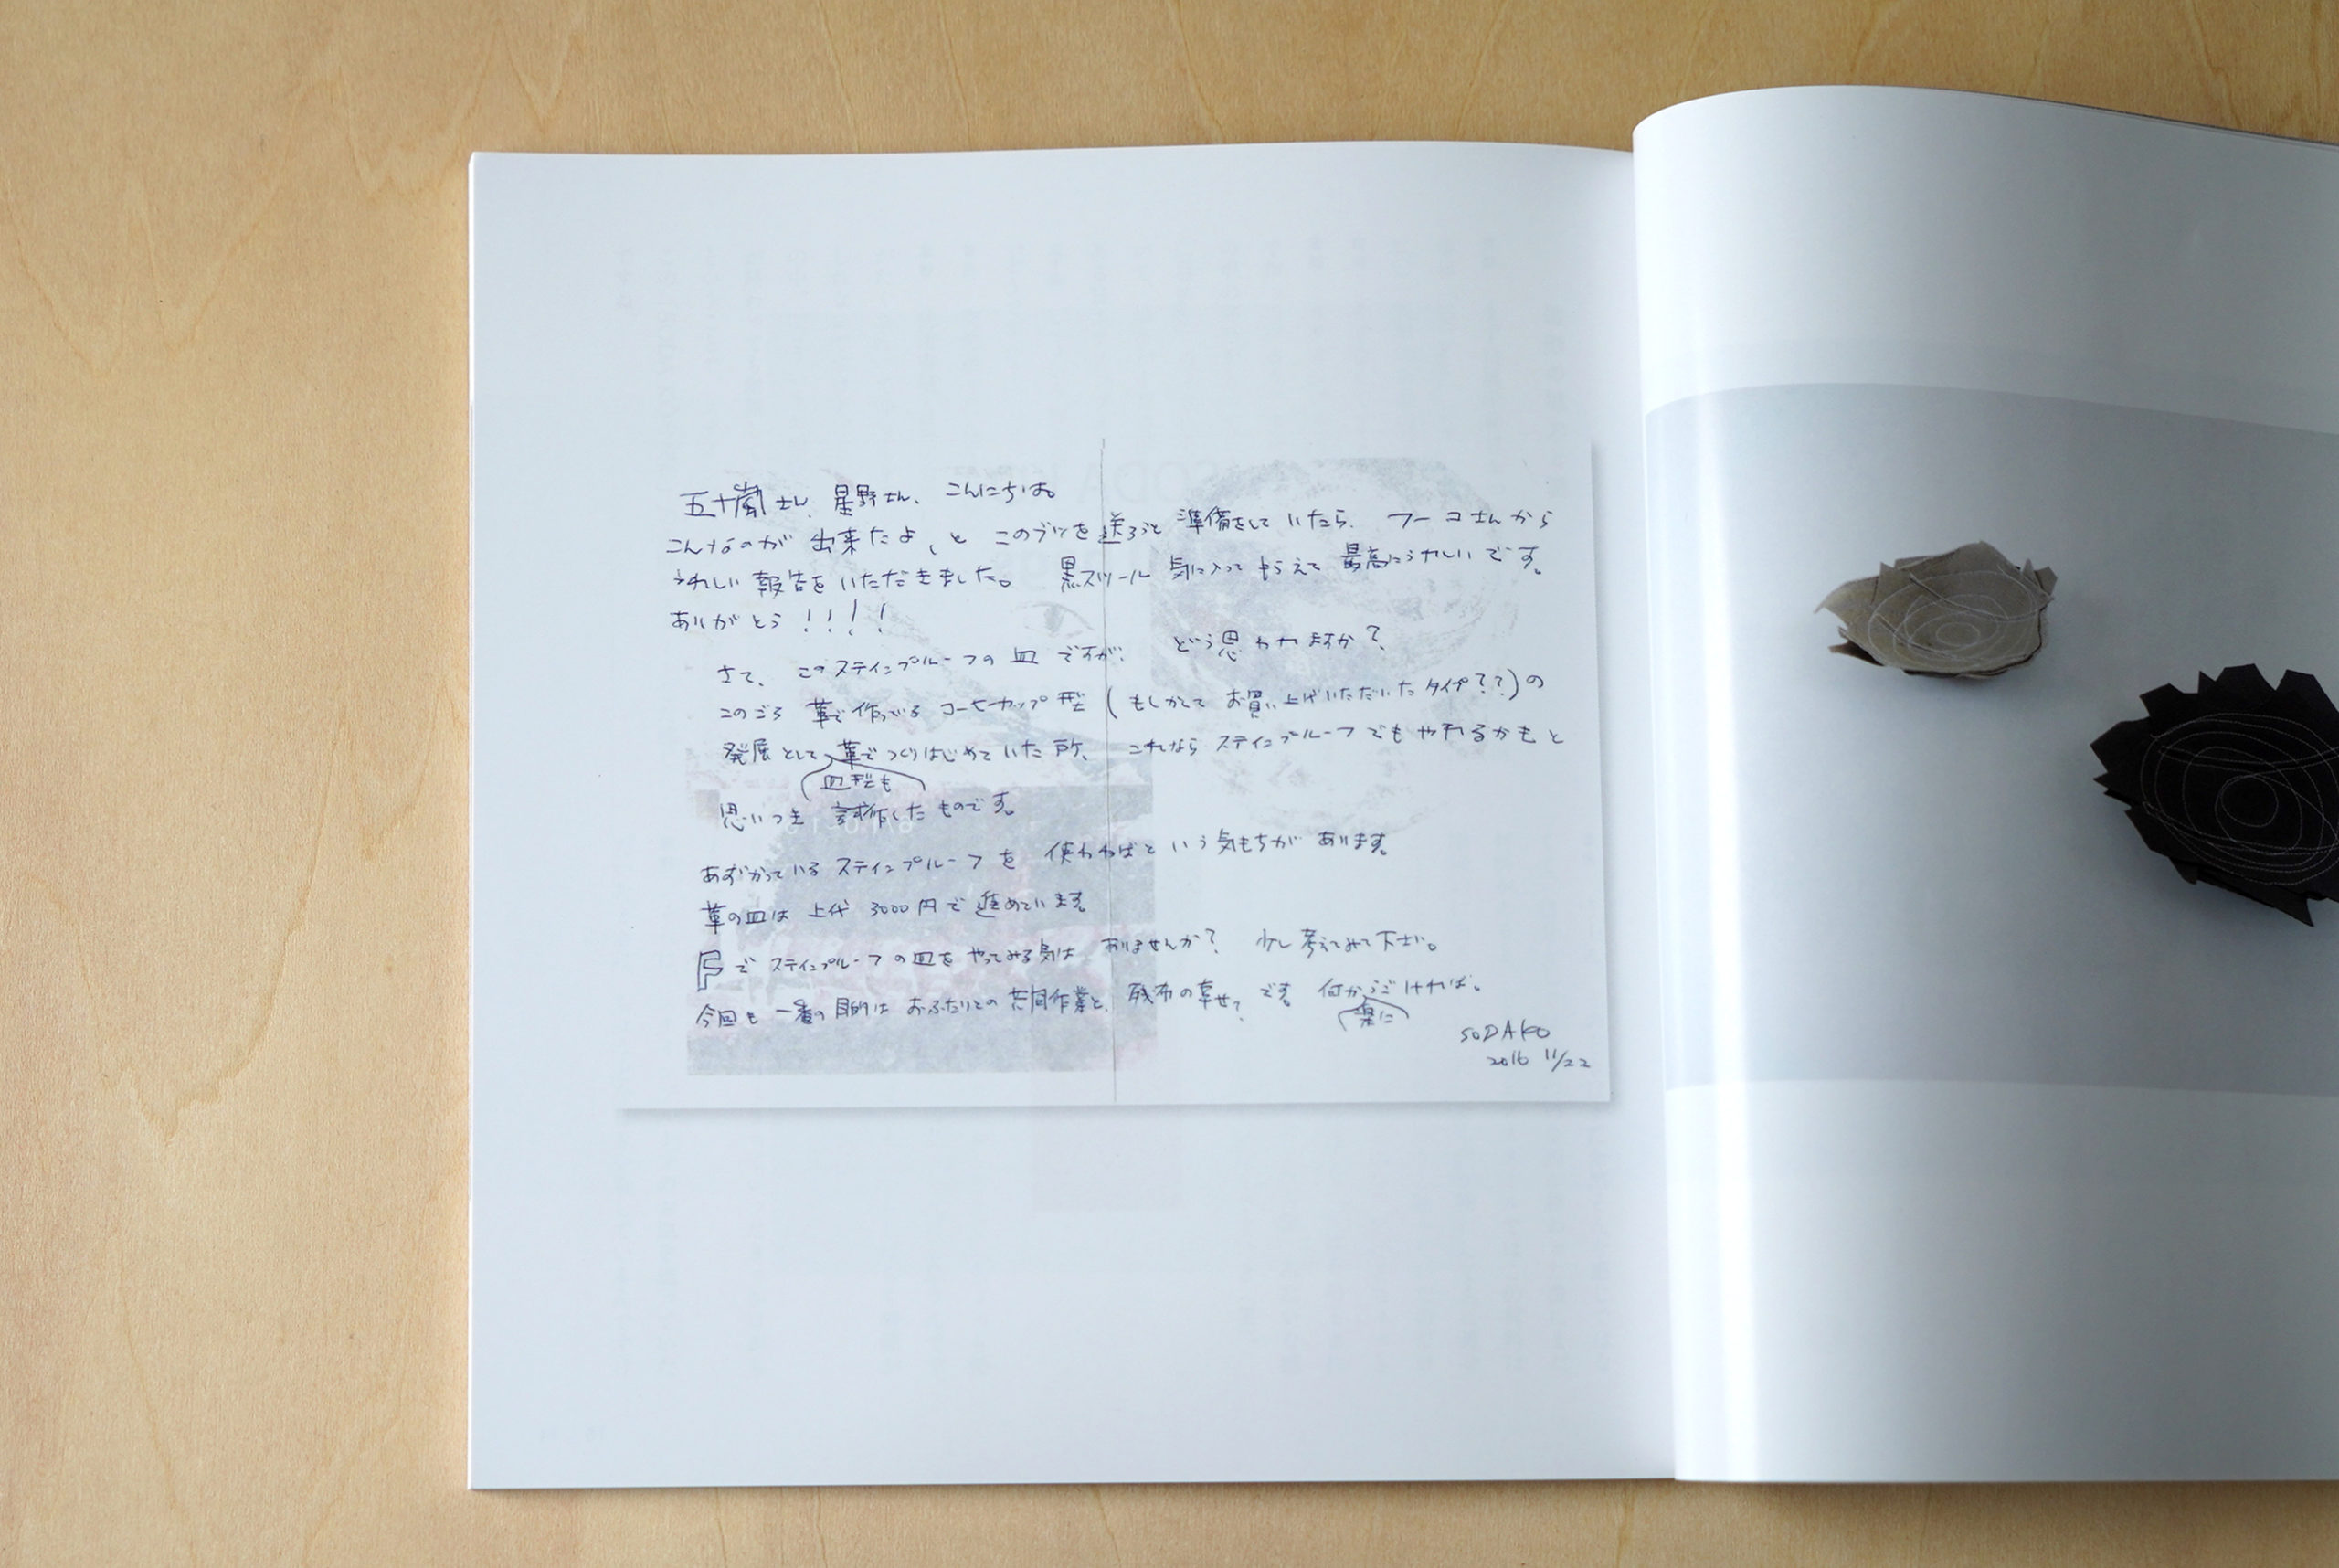 五十嵐さん、星野さん、こんにちは。
こんなのが出来たよ、と このブツを送ろうと準備をしていたら、フーコさんから
うれしい報告をいただきました。 黒スツール 気に入ってもらえて最高にうれしいです。
ありがとう!!!!
さて、このステインプルーフの皿ですが、どう思われますか?
このごろ 革で作っている コーヒーカップ型 (もしかして お買い上げいただいたタイプ??)の
発展として 革でつくりはじめていた所、これなら ステインプルーフでもやれるかもと
皿型も
思いつき 試作したものです。
あずかっているステインプルーフを 使わねばという気もちが あります。
革の皿は 上代 3000円で進めています。
Fで ステインプルーフの皿を やってみる気は ありませんか? 少し考えてみて下さい。
今回も 一番の目的は おふたりとの共同作業と、残布の幸せ?です。 何かうごければ。
楽に
SODAKO
2016 11/22